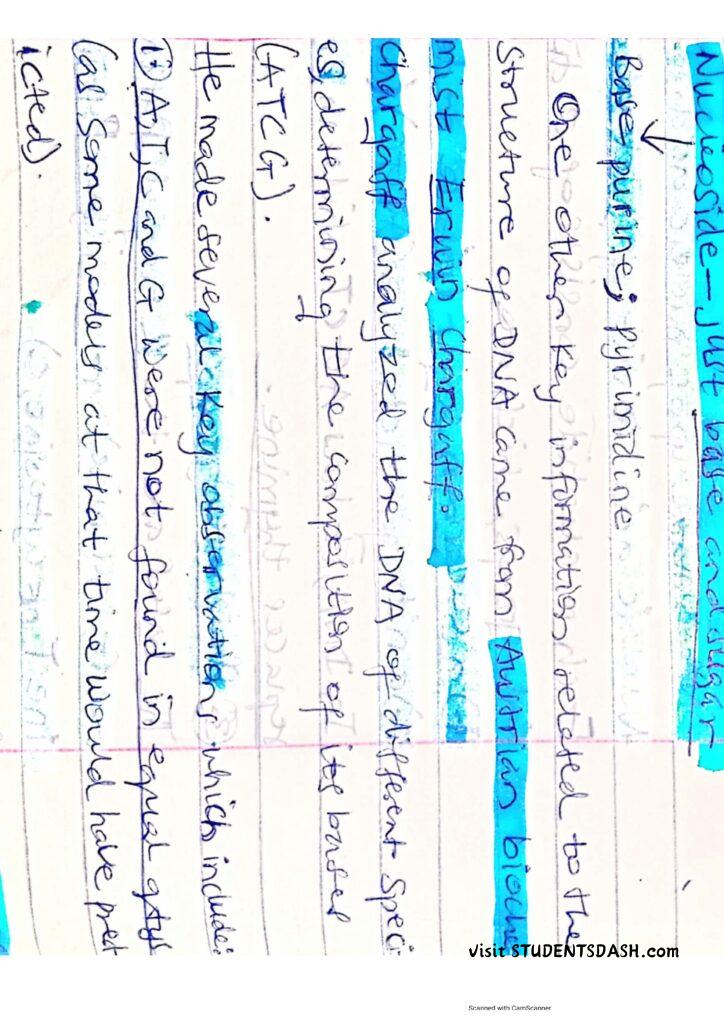 Nucleoside - just base and sugar
Base-purine; Pyrimidine
One other key information related to the
structure of DNA came from Austrian bioche
mist Erwin Chargaff.
Chargaff analyzed the DNA of different speci
es, determining the composition of its bases
(ATCG).
He made several key observations which include:
(i) A,T,C and G were not found in equal qty
(as some models at that time would have pred
icted).
visit STUDENTSDASH.com
Scanned with CamScanner